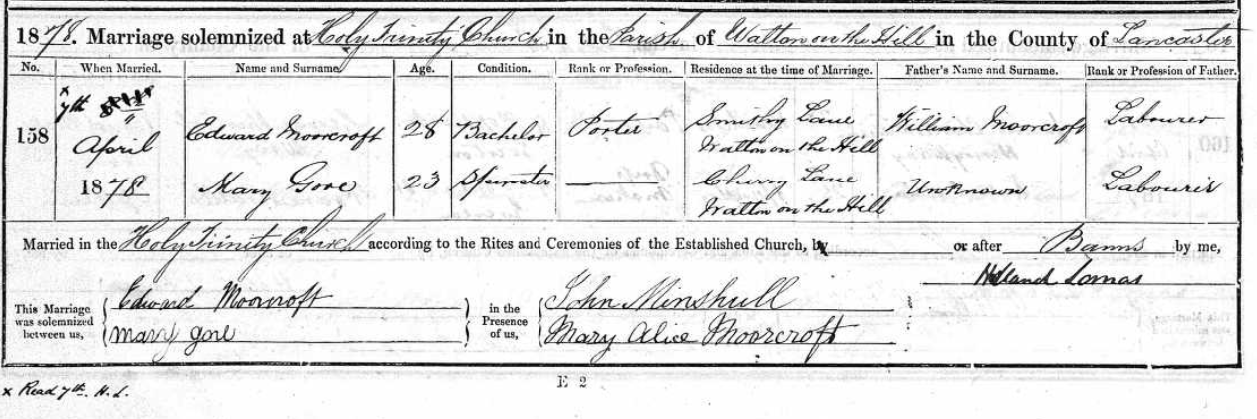 1878. Marriage solemnized at Holy Trinity Church in the Parish of Walton on the Hill in the County of Lancaster
No. When Married. Name and Surname. Age. Condition. Rank or Profession. Residence at the time of Marriage. Father's Name and Surname. Rank or Profession of Father.
158
x 7th
April
1878
Edward Moorcroft 28 Bachelor Porter Smithy Lane William Moorcroft Labourer
Walton on the Hill
Mary Gore 23 Spinster Cherry Lane Unknown Labourer
Walton on the Hill
Married in the Holy Trinity Church according to the Rites and Ceremonies of the Established Church, by or after Banns by me,
Lomas
This Marriage was solemnized between us,
Edward Moorcroft
mary gore
in the Presence of us,
John Minshull
Mary Alice Moorcroft
E 2
x Read 7th. H. L.